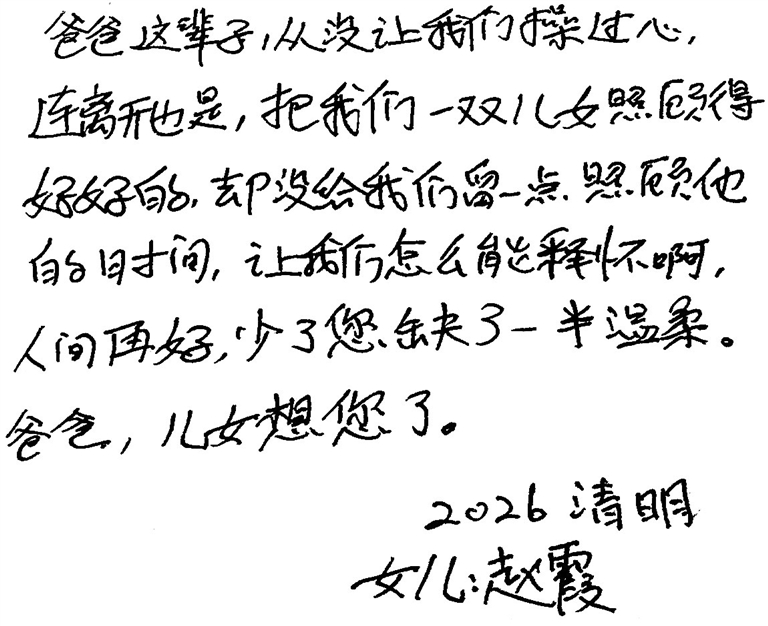 爸爸这辈子,从没让我们操过心,
连离开也是,把我们一双儿女照顾得
好好的,却没给我们留一点照顾他
的时间,让我们怎么能释怀啊,
人间再好,少了您缺了一半温柔。
爸爸,儿女想您了。
2026清明
女儿:赵霞